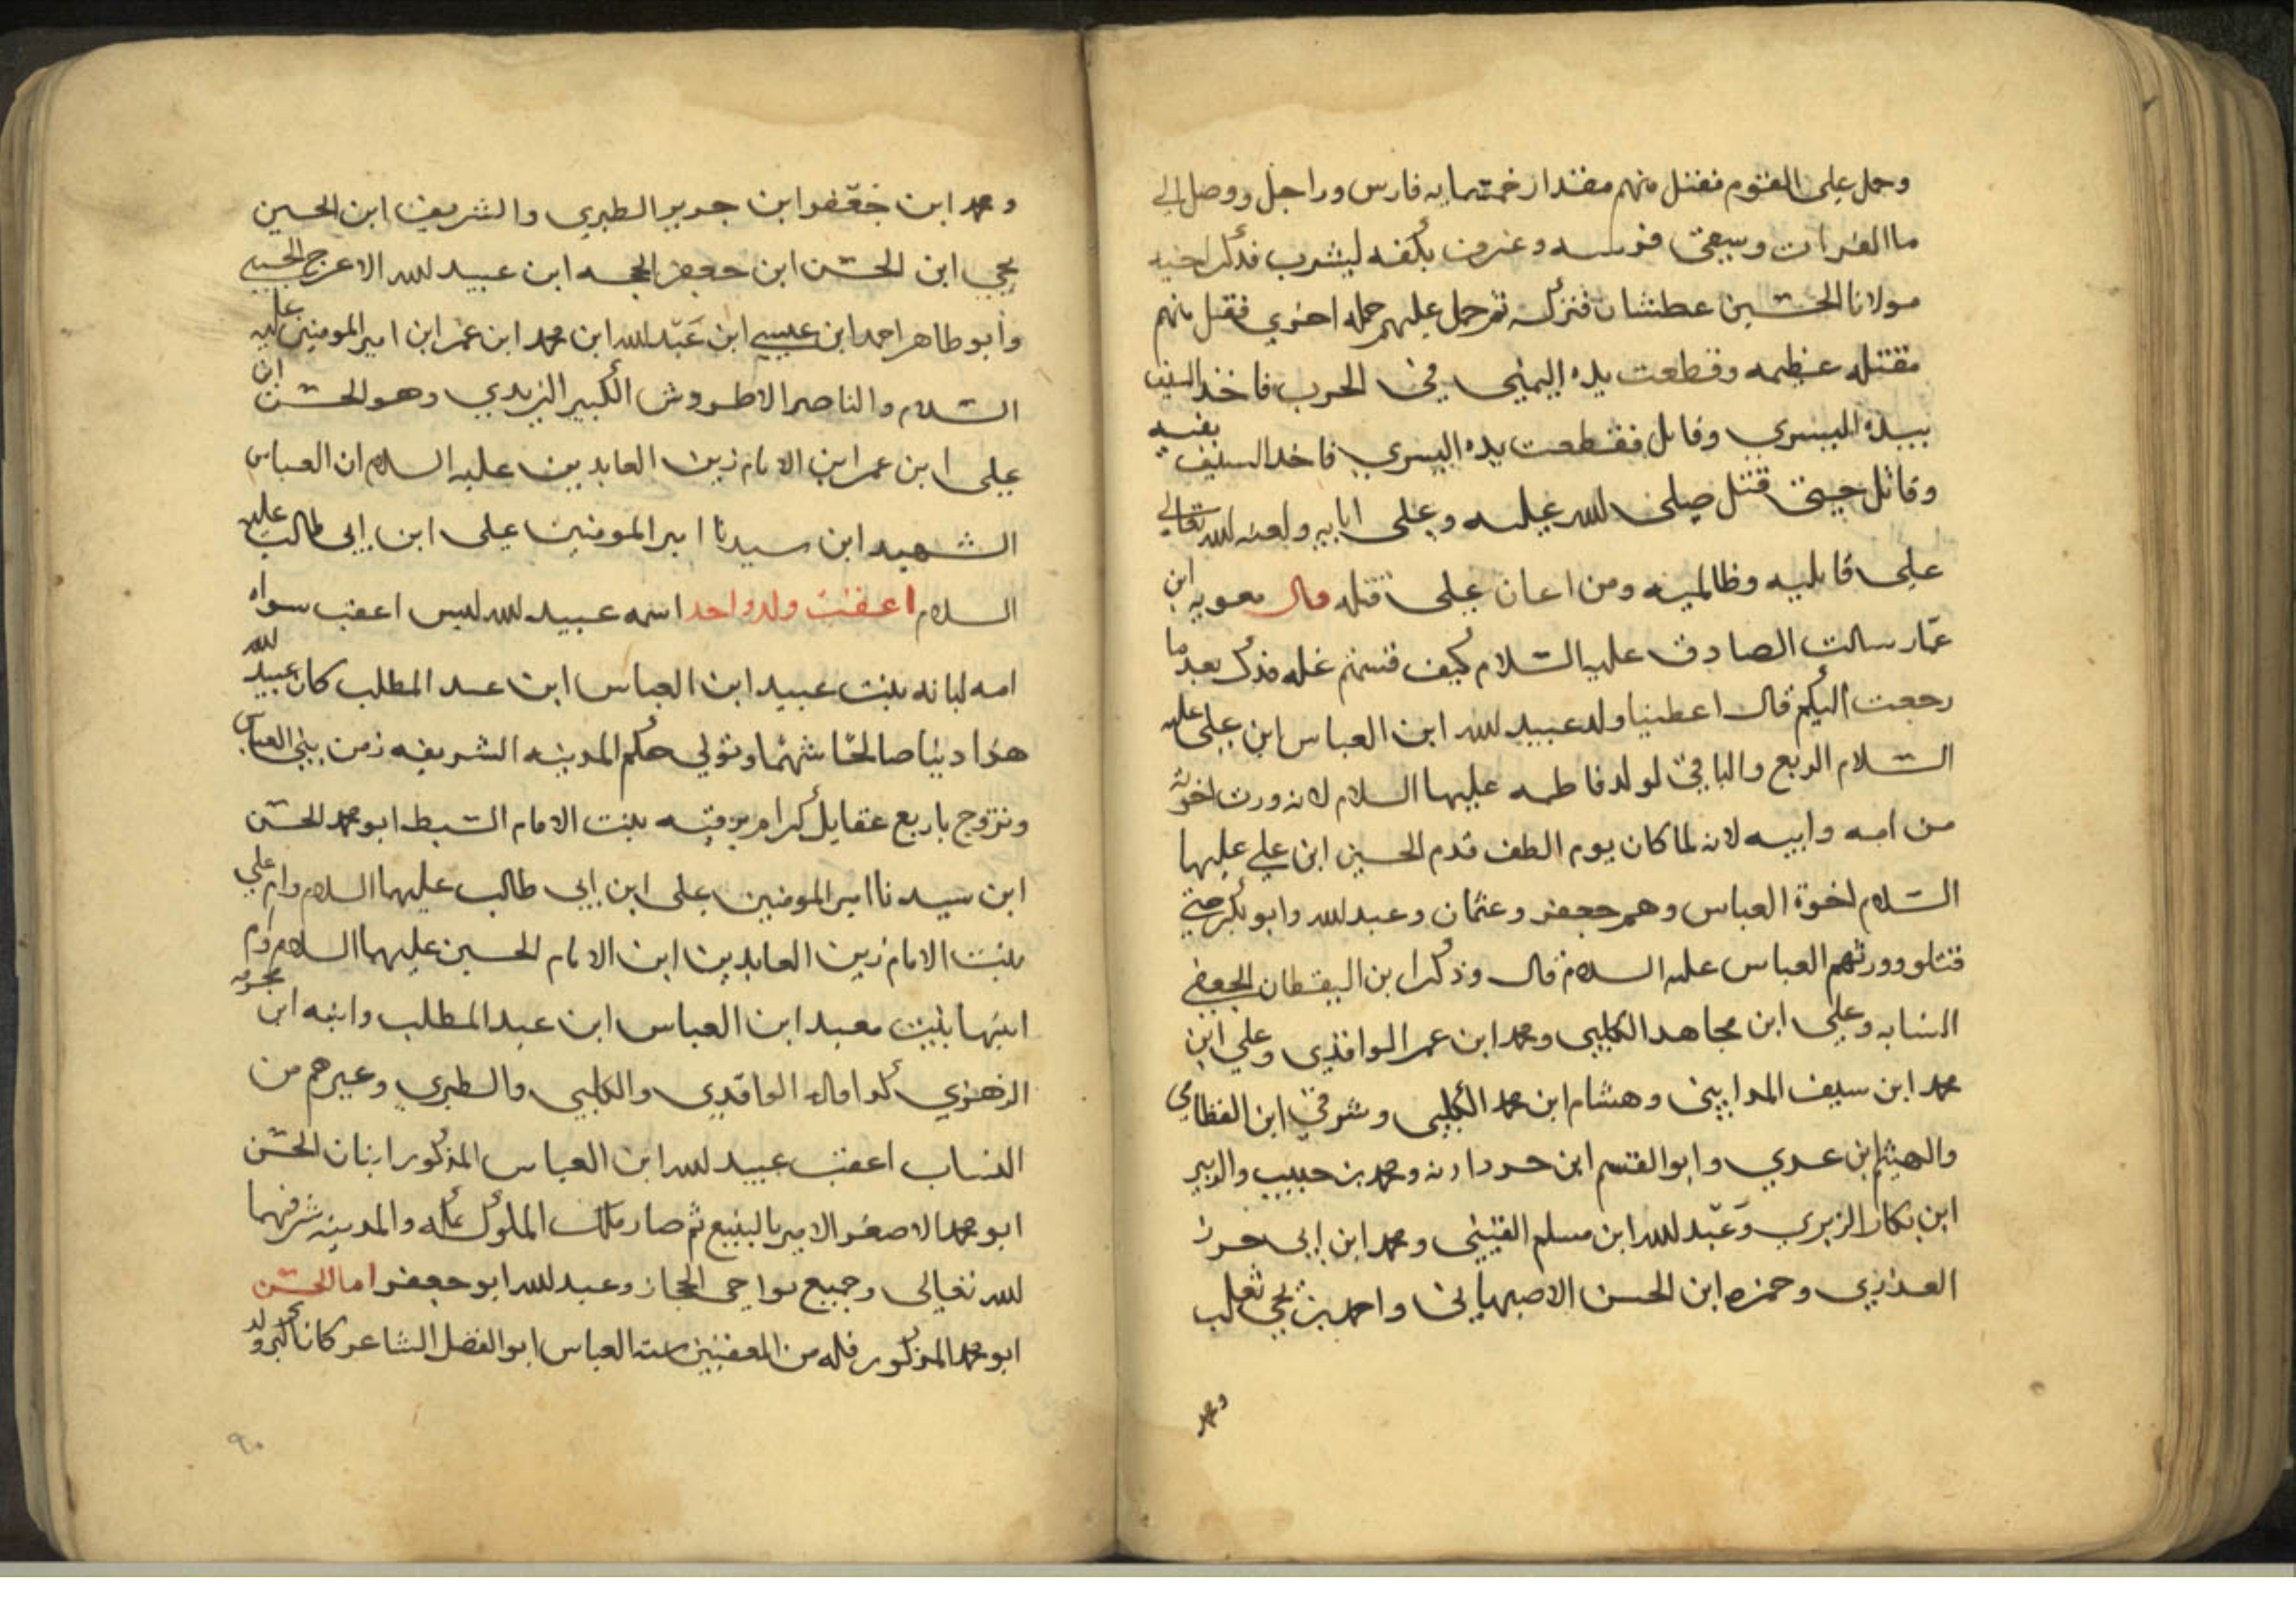 وحمل على القوم فقتل منهم مقدار خمسمايه فارس وراجل ووصل الي
ما الفرات وسقى فرسه وغرف بكفه ليشرب فذكر اخيه
مولانا الحسين عطشان فتركه ثم حمل عليهم حمله اخري فقتل منهم
مقتله عظيمه وقطعت يده اليمنى في الحرب فاخذ السيف
بيده اليسري وقاتل فقطعت يده اليسري فاخد السيف بفيه
وقاتل حتى قتل صلى الله عليه وعلى ابايه ولعنه الله تعالي
على قاتليه وظالميه ومن اعان على قتله قال معويه ابن
عمار سالت الصادق عليه السلام كيف قسمتم غله فدك بعد ما
رجعت اليكم قال اعطينا ولد عبيد الله ابن العباس ابن على عليه
السلام الربع والباقي لولد فاطمه عليها السلام لانه ورث اخوته
من امه وابيه لانه لما كان يوم الطف قدم الحسين ابن علي عليهما
السلام اخوة العباس وهم جعفر وعثمان وعبد الله وابو بكر حتى
قتلو وورثهم العباس عليه السلام قال وذكر ابن اليقظان الجعفي
النسابه وعلي ابن مجاهد الكلبي ومحمد ابن عمر الواقدي وعلي ابن
محمد ابن سيف المدايني وهشام ابن محمد الكلبي وشرقي ابن القطامي
والهيثم ابن عدي وابو القسم ابن خردادبه ومحمد بن حبيب والزبير
ابن بكار الزبري وعبد الله ابن مسلم القتيبي ومحمد ابن ابي
وحمزه ابن الحسن الاصبهاني واحمد بن يحي ثعلب
ومحمد
ومحمد ابن جعفر ابن جرير الطبري والشريف ابن الحسين
يحي ابن الحسن ابن جعفر الحجه ابن عبيد الله الاعرج الحسيني
وابو طاهر احمد ابن عيسى ابن عبد الله ابن محمد ابن عمر ابن امير المومنين عليه
السلام والناصر الاطروش الكبير الزيدي وهو الحسن ابن
على ابن عمر ابن الامام زين العابدين عليه السلام ان العباس
الشهيد ابن سيدنا امير المومنين على ابن ابي طالب عليه
السلام اعقب ولد واحد اسمه عبيد الله ليس اعقب سواه
امه لبانه بنت عبيد ابن العباس ابن عبد المطلب كان عبيد الله
هذا دينا صالحا شهما وتولي حكم المدينه الشريفه زمن بني العباس
وتزوج باربع عقايل كرام رقيه بنت الامام السبط ابو محمد الحسن
ابن سيدنا امير المومنين على ابن ابي طالب عليهما السلام وام علي
بنت الامام زين العابدين ابن الامام الحسين عليهما السلام وام
ابيها بنت معبد ابن العباس ابن عبد المطلب وابنه ابن مخرمه
الزهري كدا قاله الواقدي والكلبي والطبري وغيرهم من
النساب اعقب عبيد الله ابن العباس المذكور ابنان الحسن
ابو محمد الاصغر الامير بالينبع ثم صار ملك الملوك مكه والمدينه شرفهما
الله تعالى وجميع نواحي الحجاز وعبد الله ابو جعفر اما الحسن
ابو محمد المذكور فله من المعقبين سته العباس ابو الفضل الشاعر كان اكبر ولد
٩٠